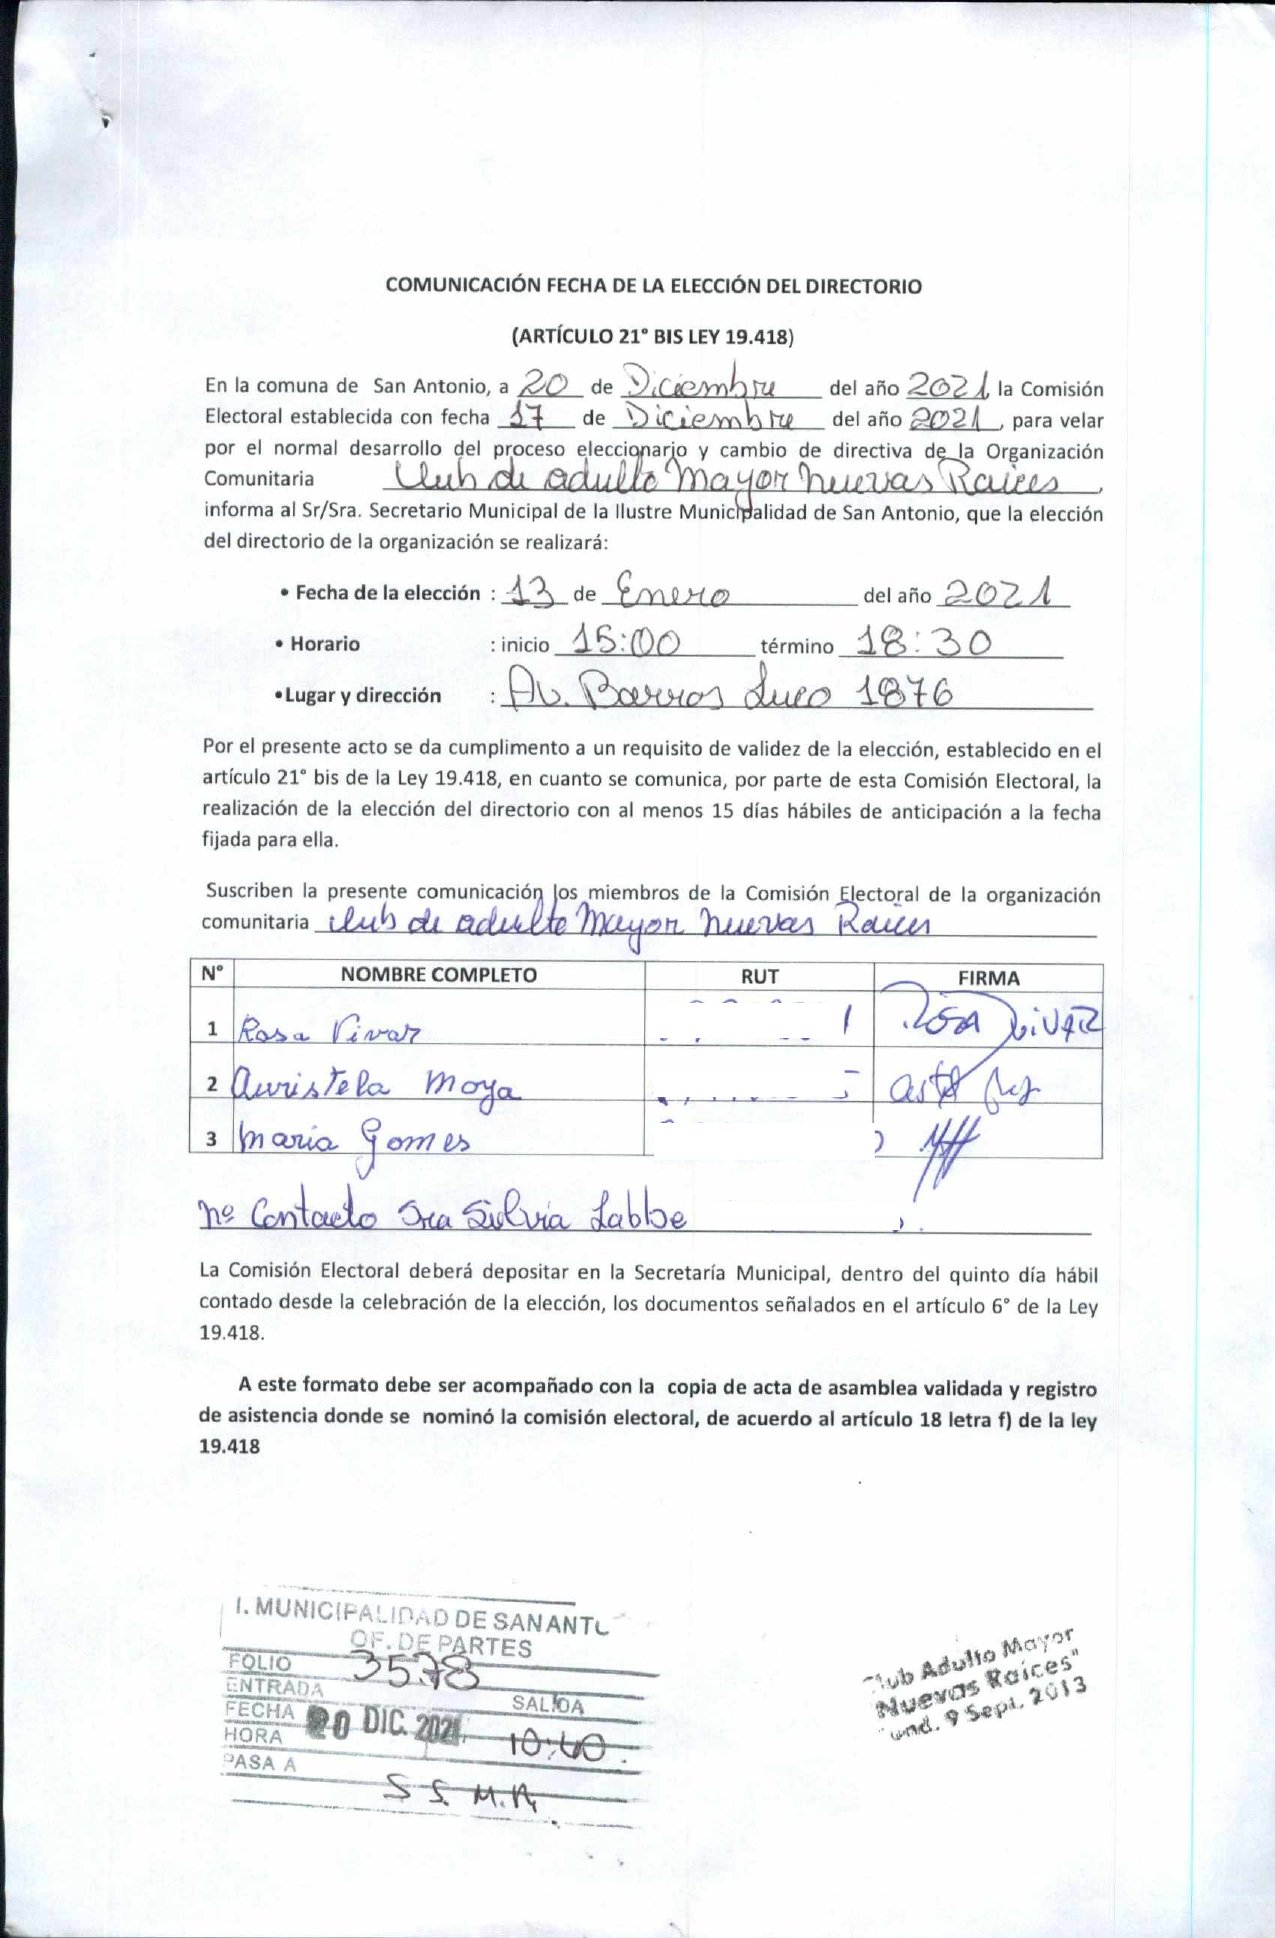 COMUNICACIÓN FECHA DE LA ELECCIÓN DEL DIRECTORIO
(ARTÍCULO 21° BIS LEY 19.418)
En la comuna de San Antonio, a 20 de Diciembre del año 2021, la Comisión
Electoral establecida con fecha 17 de Diciembre del año 2021, para velar
por el normal desarrollo del proceso eleccionario y cambio de directiva de la Organización
Comunitaria Club de adulto Mayor nuevas Raices,
informa al Sr/Sra. Secretario Municipal de la Ilustre Municipalidad de San Antonio, que la elección
del directorio de la organización se realizará:
• Fecha de la elección : 13 de Enero del año 2021
• Horario : inicio 15:00 término 18:30
•Lugar y dirección : Av. Barros Luco 1876
Por el presente acto se da cumplimento a un requisito de validez de la elección, establecido en el
artículo 21° bis de la Ley 19.418, en cuanto se comunica, por parte de esta Comisión Electoral, la
realización de la elección del directorio con al menos 15 días hábiles de anticipación a la fecha
fijada para ella.
Suscriben la presente comunicación los miembros de la Comisión Electoral de la organización
comunitaria club de adulto Mayor nuevas Raices
N° NOMBRE COMPLETO RUT FIRMA
1 Rosa Vivar ROSA VIVAR
2 Auristela Moya
3 Maria Gomes
nº Contacto Sra Silvia Labbe
La Comisión Electoral deberá depositar en la Secretaría Municipal, dentro del quinto día hábil
contado desde la celebración de la elección, los documentos señalados en el artículo 6° de la Ley
19.418.
A este formato debe ser acompañado con la copia de acta de asamblea validada y registro
de asistencia donde se nominó la comisión electoral, de acuerdo al artículo 18 letra f) de la ley
19.418
I. MUNICIPALIDAD DE SAN ANTO
OF. DE PARTES
FOLIO 3578
ENTRADA SALIDA
FECHA 20 DIC. 2021
HORA 10:40.
PASA A
S S. M. A.
Club Adulto Mayor
Nuevas Raíces"
Fund. 9 Sept. 2013